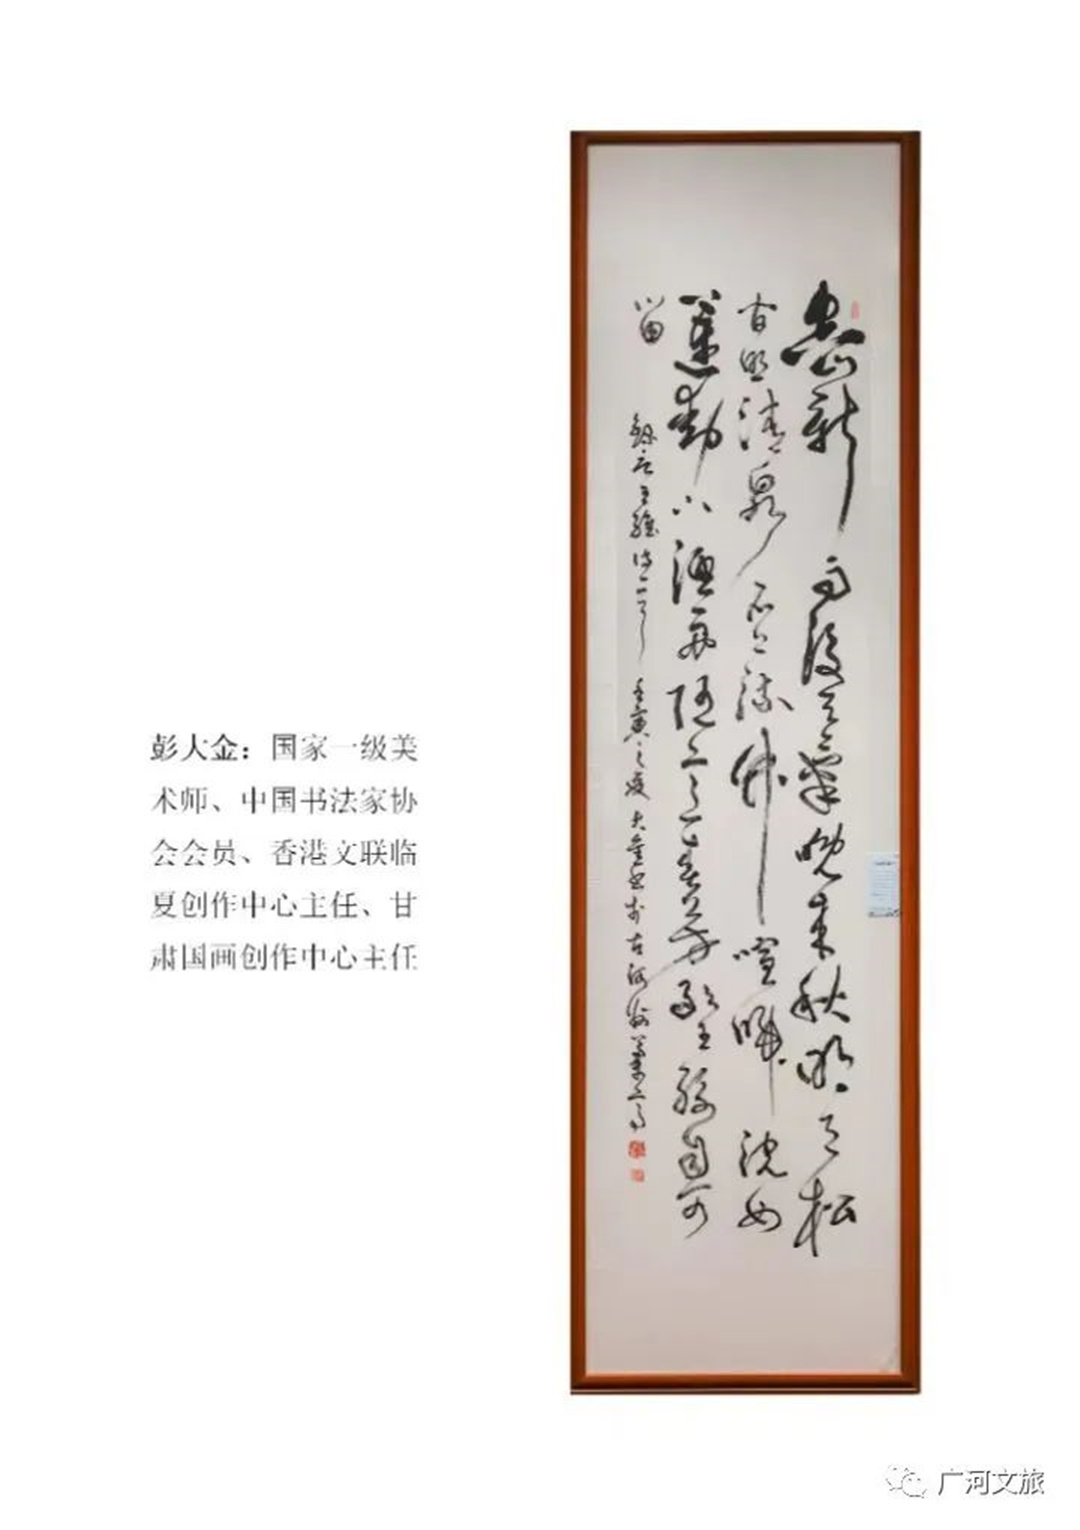 彭大金：国家一级美
术师、中国书法家协
会会员、香港文联临
夏创作中心主任、甘
肃国画创作中心主任
空山新雨後天氣晚来秋明月松
間照清泉石上流竹喧歸浣女
蓮動下漁舟随意春芳歇王孫自可
留
王維詩一首壬寅之夏大金書於古河州
广河文旅